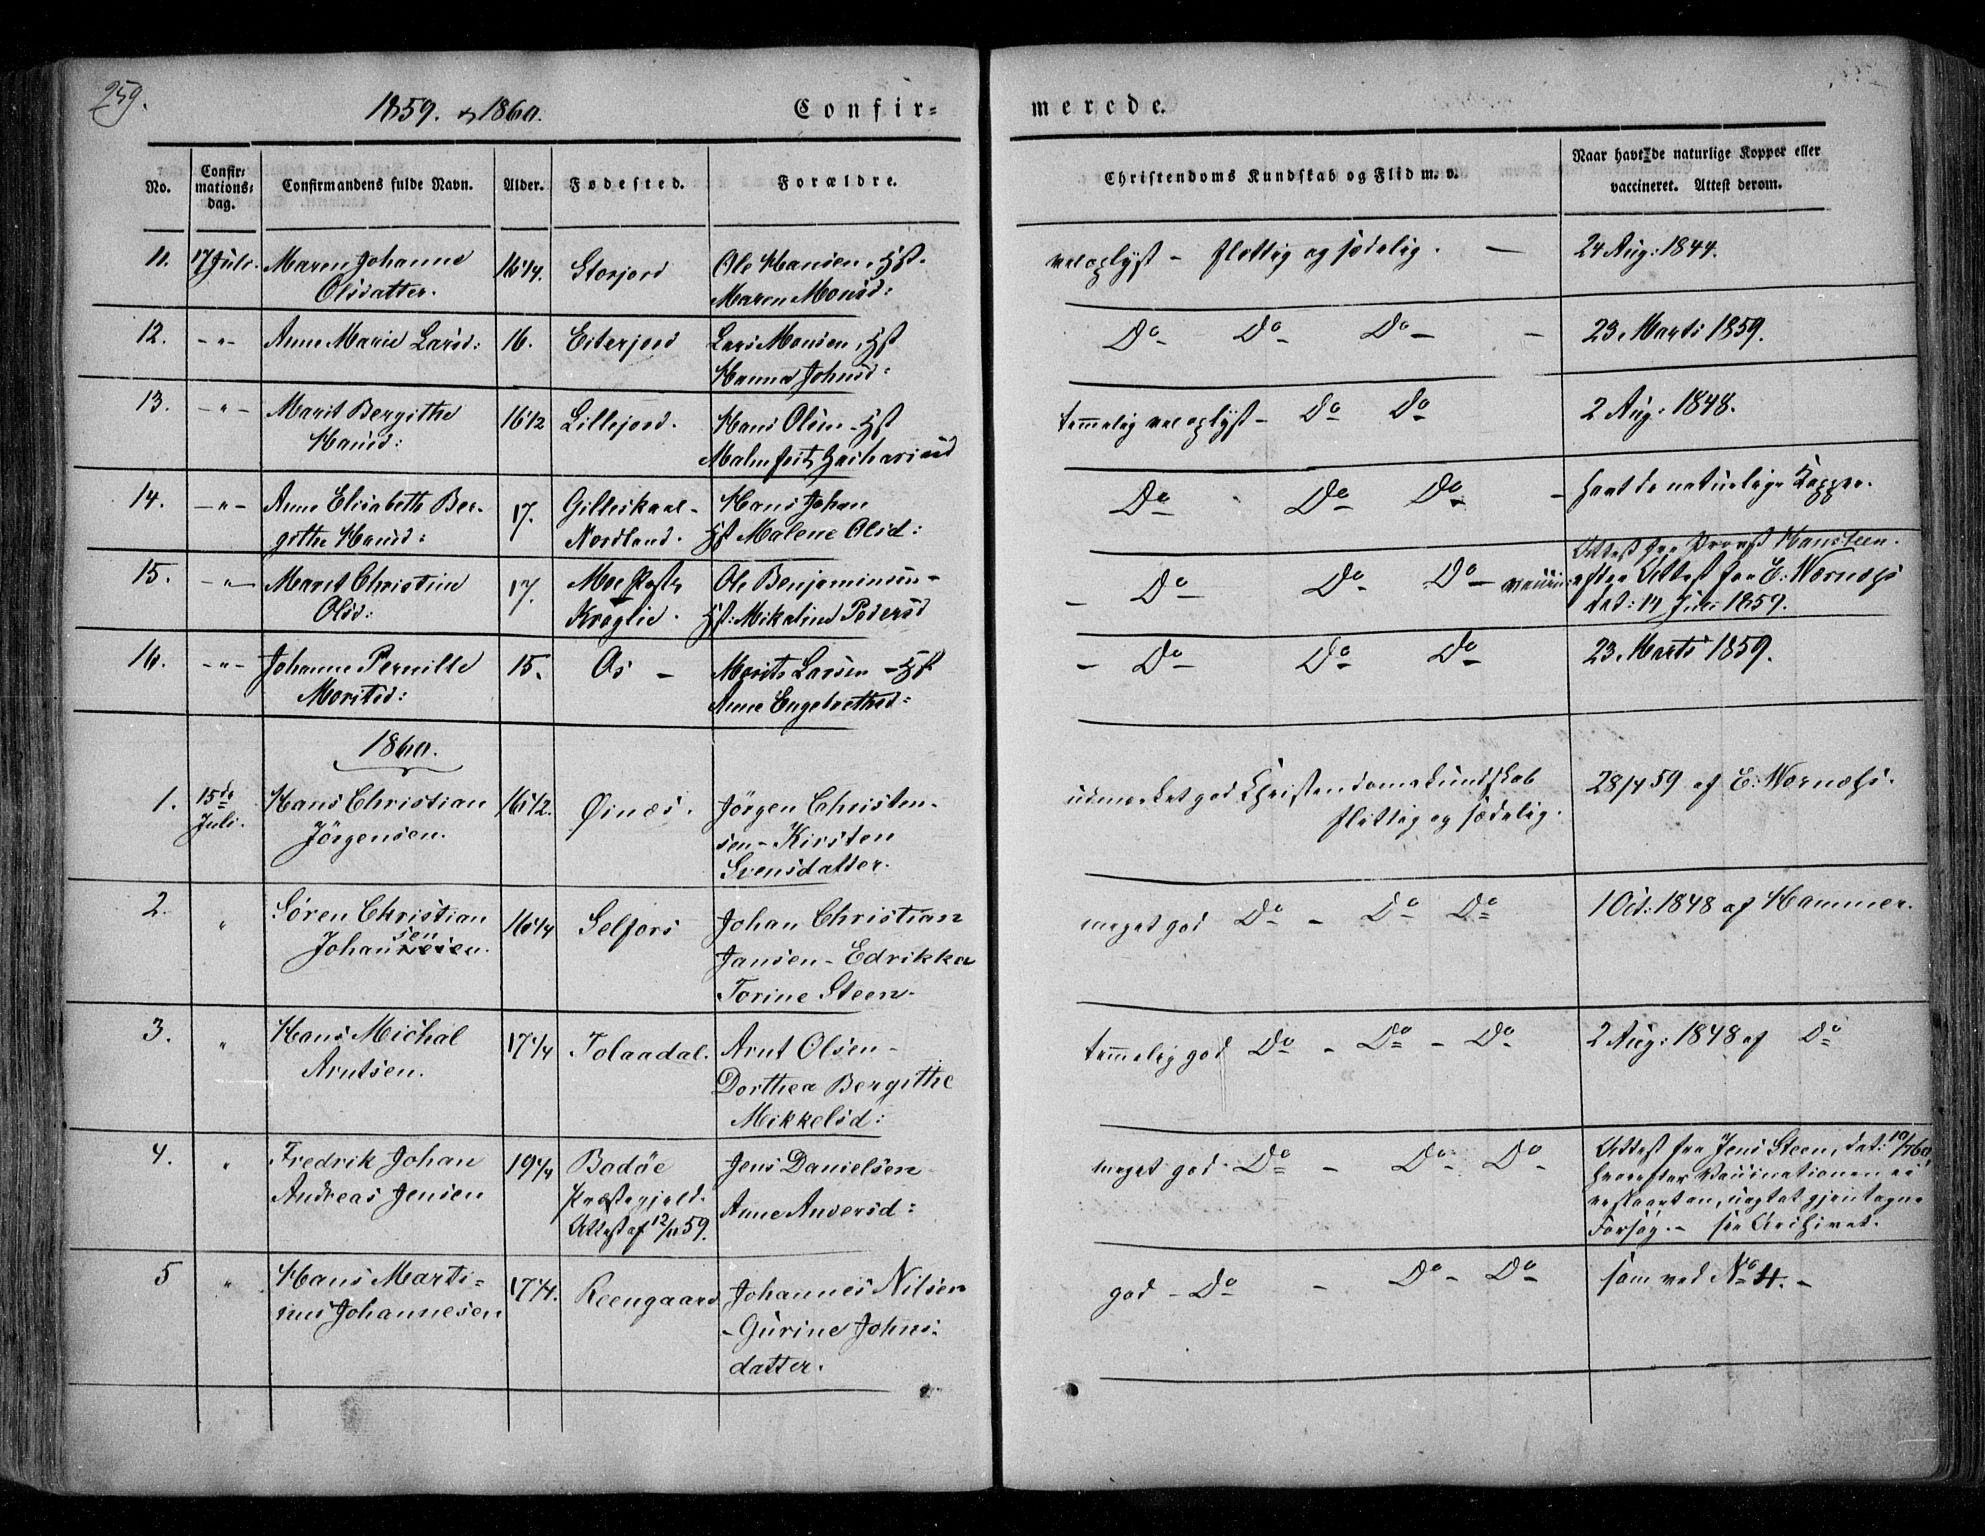 259.
1859. & 1860.
Confir=
merede.
No.
Confir=
mations=
dag.
Confirmandens fulde Navn.
Alder.
Fødested.
Forældre.
Christendoms Kundskab og Flid m. v.
Naar havt de naturlige Kopper eller
vaccineret. Attest derom.
11. 17 Juli. Maren Johanne 16 1/4. Storjord Ole Hansen, Hst. veloplyst - flittig og sædelig. - 24 Aug: 1844.
Olsdatter. Maren Monsd:
12. -"- Anne Marie Larsd: 16. Eiterjord Lars Monsen, Hst Do Do Do - 23 Marts 1859.
Hanna Johnsd:
13. -"- Marit Bergithe 16 1/2 Lillejord. Hans Olsen - Hst temmelig vel oplyst - Do Do 2 Aug: 1848.
Hansd: Malenfritz Zachariasd
14. -"- Anne Elisabeth Ber- 17. Gilleskaal- Hans Johan Do Do Do - havt de naturlige Kopper.
githe Hansd: Nordland. Hst Malene Olsd: Attest fra Provst Hansteen.
15. -"- Maret Christine 17. Moe Ole Benjaminsen - - Do Do Do - vaccin: efter Attest fra E: Wornæss
Olsd: Kroglie. Hst: Mikaline Pedersd dat: 14 Juli 1859.
16. -"- Johanne Pernille 15. Os - Morits Larsen - Hst - Do Do Do 23 Marts 1859.
Moritsd: Anne Engebrethsd:
1860.
1. 15de Hans Christian 16 1/2. Øinæs. Jörgen Christen- udmærket god Christendomskundskab 28/4 59 af E: Wornæss.
Juli. Jörgensen. sen - Kirsten flittig og sædelig.
Svensdatter.
2. " Sören Christian 16 1/4 Selfors Johan Christian meget god Do - Do Do 1 Oct: 1848 af Hammer.
Johansen. Jansen - Edrikka
Torine Steen.
3. " Hans Michal 17 1/4 Tolaadal. Arnt Olsen - temmelig god Do - Do - Do 2 Aug: 1848 af Do
Arntsen. Dorthea Bergithe
Mikkelsd:
4. " Fredrik Johan 19 1/4 Bodöe Jens Danielsen meget god - Do - Do Do Attest fra Jens Steen, dat: 10/7 60
Andreas Jensen Præstegjeld. Anne Andersd: hvorefter Vaccinationen ei
Attest af 12/11 59. er slaaet an, uagtet gjentagne
Forsög. - see Archivet.
5 " Hans Marti= 17 1/4. Reengaard Johannes Nilsen god - Do - Do - Do som ved No 4. -
nus Johannesen - Gurine Johns-
datter.